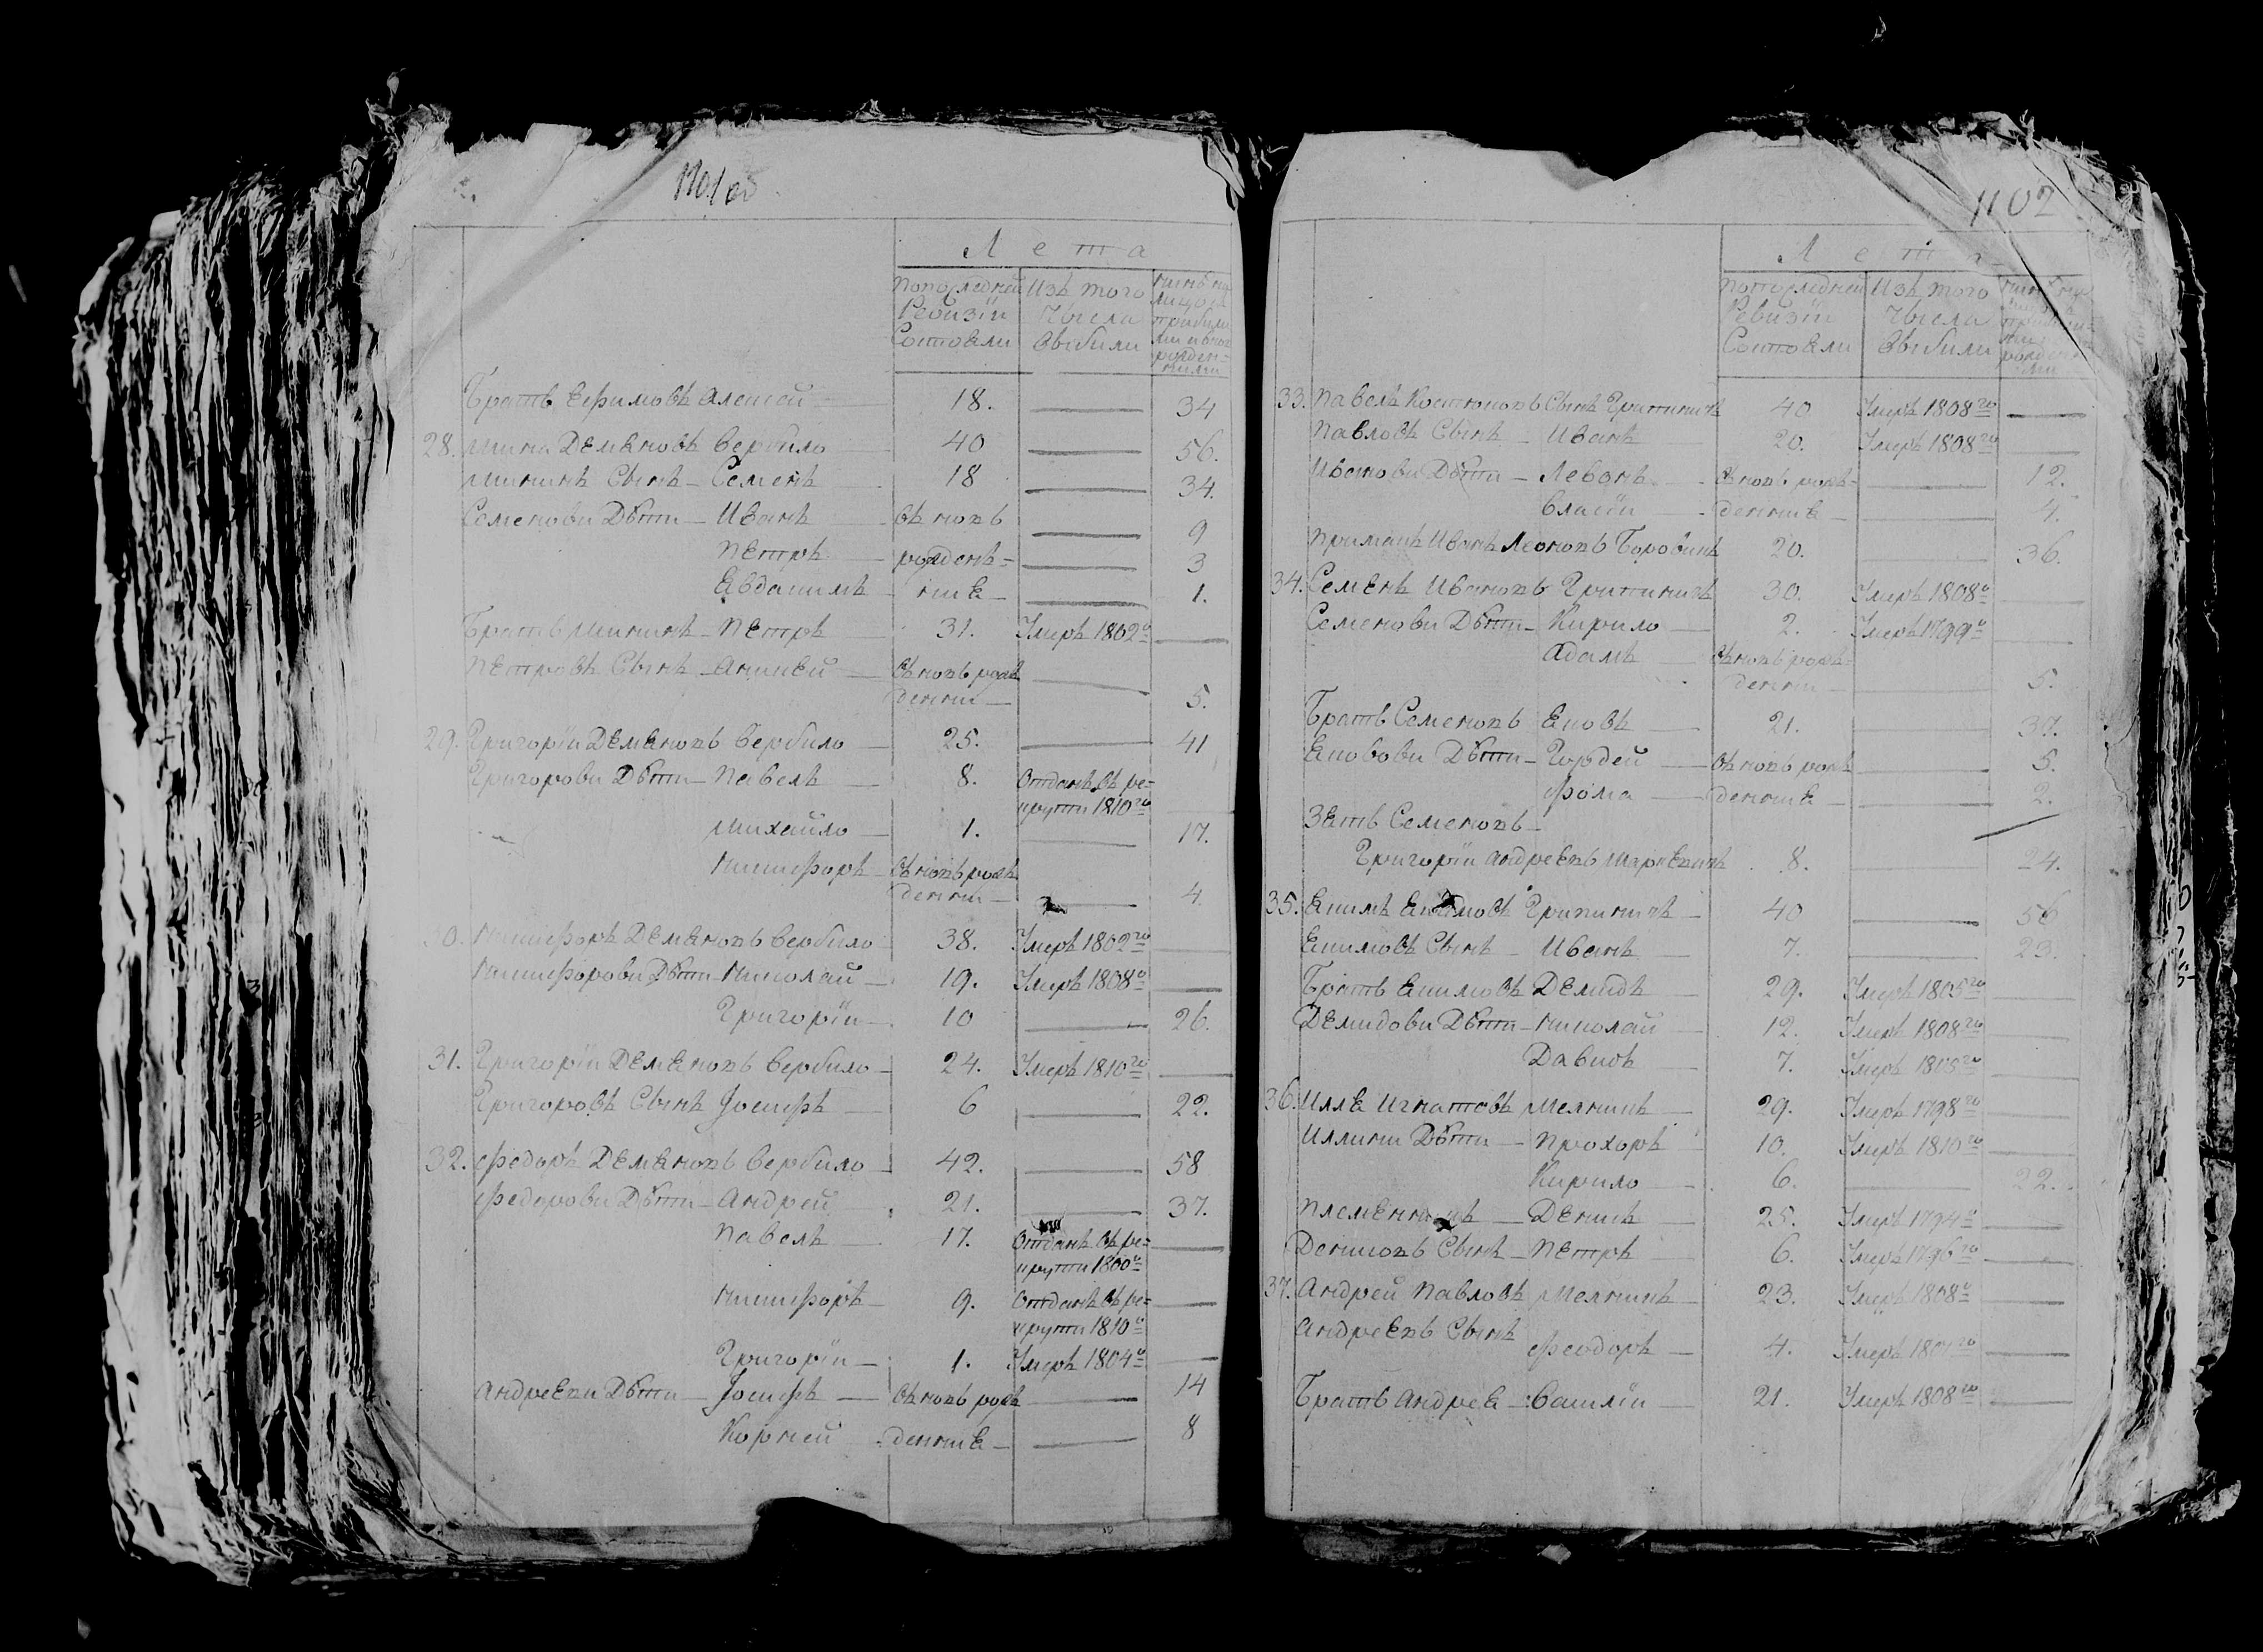 1101 об
Лета
Попоследней Ревизiи Состояли
Изъ того Числа Выбили
Братъ Ефимовъ Алексей — 18. — 34
28. Мина Демяновъ Вербило — 40 — 56.
Мининъ Сынъ — Семенъ — 18 — 34.
Семенови Дѣти — Иванъ — въ новъ — 9
Петръ — рожденъ= — 3
Евдакимъ — ние — 1.
Братъ Мининъ — Петръ — 31. Умеръ 1802го —
Петровъ Сынъ — Аникей — въ новъ рож
денни — 5.
29. Григорiй Демяновъ Вербило — 25. — 41
Григорови Дѣти — Павелъ — 8. Отданъ въ ре=
крути 1810го —
Михайло — 1. — 17.
Никифоръ — въ новъ рож
денни — 4.
30. Никифоръ Демяновъ Вербило 38. Умеръ 1802го —
Никифорови Дѣти — Николай — 19. Умеръ 1808го —
Григорiй — 10 — 26.
31. Григорiй Демяновъ Вербило — 24. Умеръ 1810го —
Григоровъ Сынъ Iосифъ — 6 — 22.
32. Федоръ Демяновъ Вербило — 42. — 58
Федорови Дѣти — Андрей — 21. — 37.
Павелъ — 17. Отданъ въ ре= —
крути 1800го
Никифоръ — 9. Отданъ въ ре= —
крути 1810го
Григорiй — 1. Умеръ 1804го —
Андрееви Дѣти — Iосифъ — въ новъ рож — 14
Корней — денние — 8
1102
Лета
Попоследней Ревизiи Состояли
Изъ того Числа Выбили
33. Павелъ Костюковъ Сынъ 40 Умеръ 1808го —
Павловъ Сынъ — Иванъ 20. Умеръ 1808го —
Иванови Дѣти — Леванъ — въ новъ рож= — 12.
Власiй — денние — 4.
Примакъ Иванъ Леоновъ Боровикъ 20. — 36.
34. Семенъ Ивановъ 30. Умеръ 1808го —
Семенови Дѣти — Кирило — 2. Умеръ 1799го —
Адамъ — въ новъ рож=
денни — 5.
Братъ Семеновъ Яковъ — 21. — 37.
Яковови Дѣти — Гордей — въ новъ рож — 5.
Фома — денние — 2.
Зять Семеновъ —
Григорiй Андреевъ 8. — 24.
35. Екимъ 40 — 56
Екимовъ Сынъ — Иванъ — 7. — 23.
Братъ Екимовъ Демидъ — 29. Умеръ 1805го —
Демидови Дѣти — Николай — 12. Умеръ 1808го —
Давидъ — 7. Умеръ 1805го —
36. Илля Игнатовъ Мелникъ — 29. Умеръ 1798го —
Иллини Дѣти — Прохоръ 10. Умеръ 1810го —
Кирило — 6. — 22.
Племенникъ — Денисъ — 25. Умеръ 1794го —
Денисовъ Сынъ — Петръ — 6. Умеръ 1796го —
37. Андрей Павловъ Мелникъ — 23. Умеръ 1808го —
Андреевъ Сынъ
Феодоръ — 4. Умеръ —
Братъ Андрея — Василiй — 21. Умеръ 1808го —